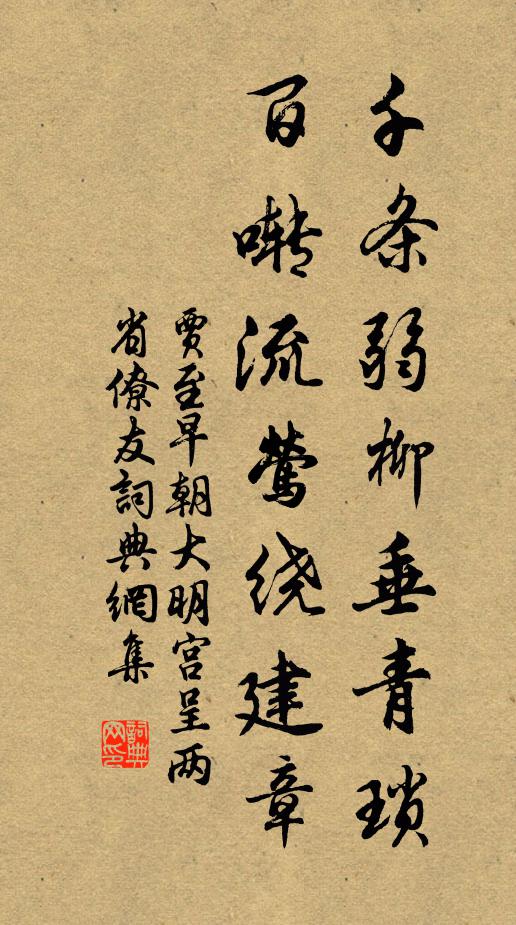 千条弱柳垂青琐
百啭流莺绕建章
賈至早朝大明宫呈两
省僚友詞典網集
詞典
网印